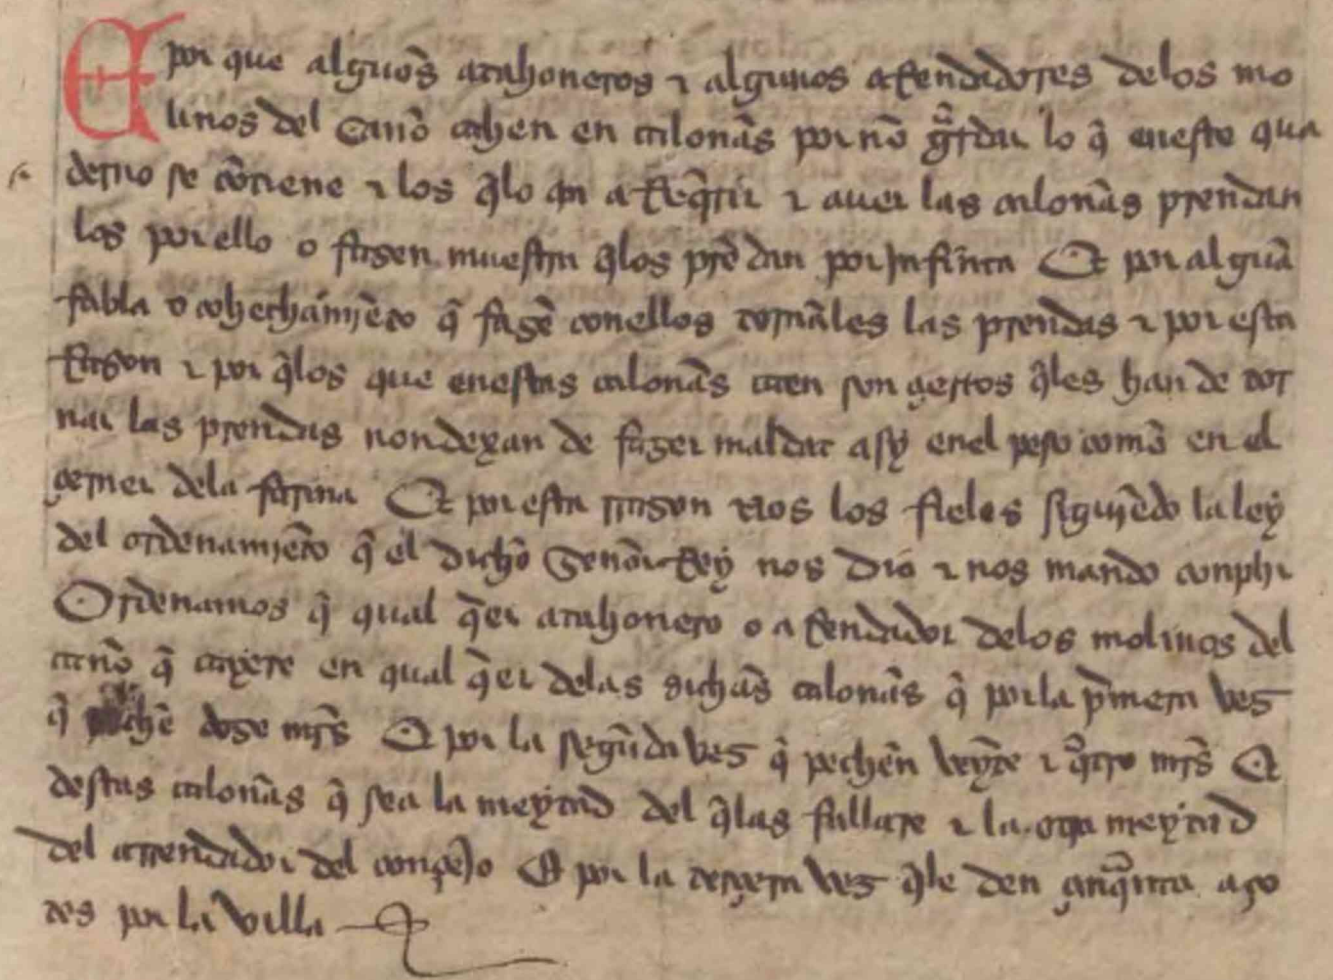 E por que alguōs atahoneros ⁊ algunos aRendadores delos mo
linos del Cañō cahen en calonās por nō g̃rdar lo q̄ eneste qua
derno se cōtiene ⁊ los q̄lo an a Req̄rir ⁊ auer las calonās prendan
los por ello o fazen muestra q̄los prēdan por Jnfinta Et por alguā
fabla o cohechamiēto q̄ fazē conellos tornāles las prendas ⁊ por esta
Razon ⁊ por q̄los que enestas calonās caen son çiertos q̄les han de tor
nar las prendas nondexan de fazer maldat asy enel peso comō en el
çerner dela farina Et por esta rrazon nos los fieles siguiēdo la ley
del ordenamiēto q̄ el dichō Senōr Rey nos dió ⁊ nos mando conplir
Ordenamos q̄ qual q̄er atahonero o aRendador delos molinos del
cañō q̄ cayere en qual q̄er delas dichās calonās q̄ por la p̄mera vez
q̄ pechē doze mr̄s Et por la segūda vez q̄ pechēn veyn̄te ⁊ q̄tro mr̄s Et
destas calonās q̄ sea la meytad del q̄las fallare ⁊ la otra meytad
del arrendador del conçejo Et por la terçera vez q̄le den çinq̄nta aço
tes por la villa